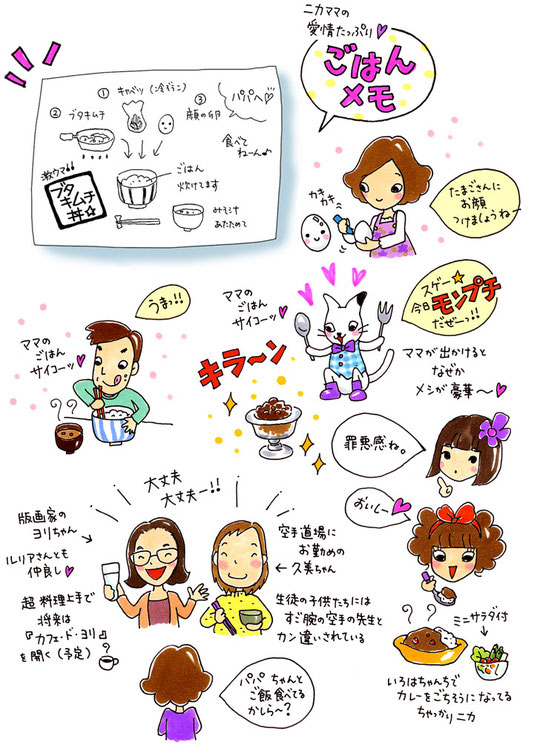 ニカママの
愛情たっぷり
ごはん
メモ
① キャベツ(冷ぞうこ)
② ブタキムチ
③ 顔の卵
パパへ
食べて
ねーん♪
激ウマ!!
ブタ
キムチ
丼☆
ごはん
炊けてます
みそ汁
あたためて
カキ
カキ
たまごさんに
お顔
つけましょうねー
うまっ!!
ママの
ごはん
サイコーッ
ママの
ごはん
サイコーッ
スゲー
今日モンプチ
だぜーっ!!
キラ〜ン
ママが出かけると
なぜか
メシが豪華〜
罪悪感ね。
おいしー
大丈夫
大丈夫ー!!
版画家の
ヨリちゃん
ルリアさんとも
仲良し
超料理上手で
将来は
『カフェ・ド・ヨリ』
を開く(予定)
空手道場に
お勤めの
久美ちゃん
生徒の子供たちには
すご腕の空手の先生と
カン違いされている
ミニサラダ付
いろはちゃんちで
カレーをごちそうになってる
ちゃっかりニカ
パパちゃんと
ご飯食べてる
かしら〜?